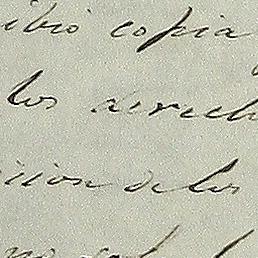 ibió copia
los derech
ision de los